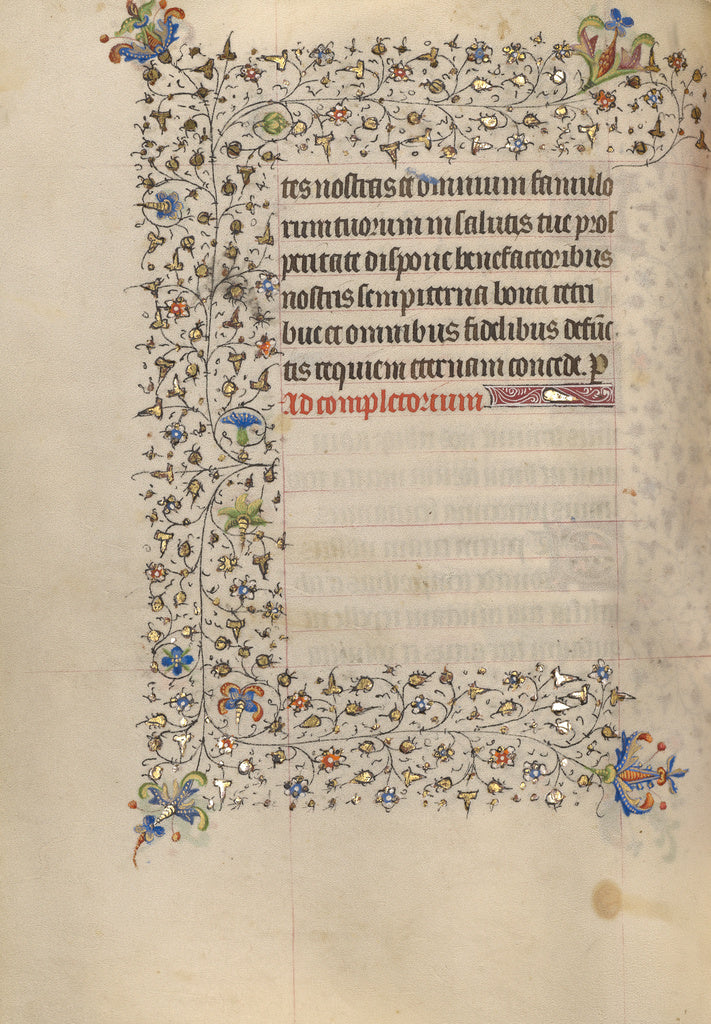 tes nostras et omnium famulo
rum tuorum in salutis tue pros
peritate dispone benefactoribus
nostris sempiterna bona retri
bue et omnibus fidelibus defūc
tis requiem eternam concede. P
Ad completorium